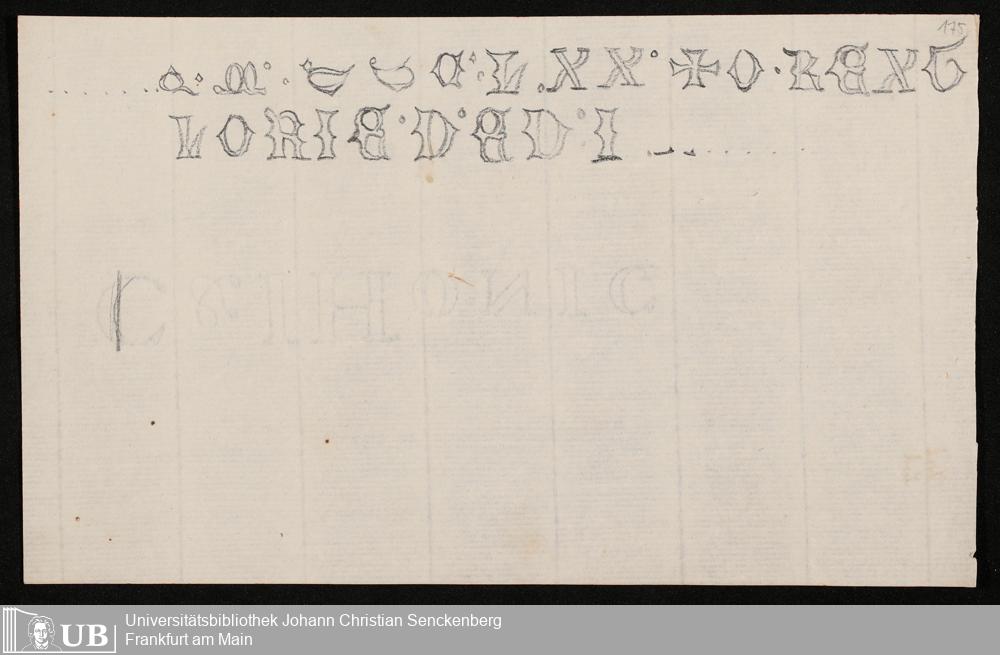 175
. . . . . . . A: M°. C C C: L.XX° ✠ O·REX G
LORIE·D°ED:I . . . . . . . .
UB
Universitätsbibliothek Johann Christian Senckenberg
Frankfurt am Main